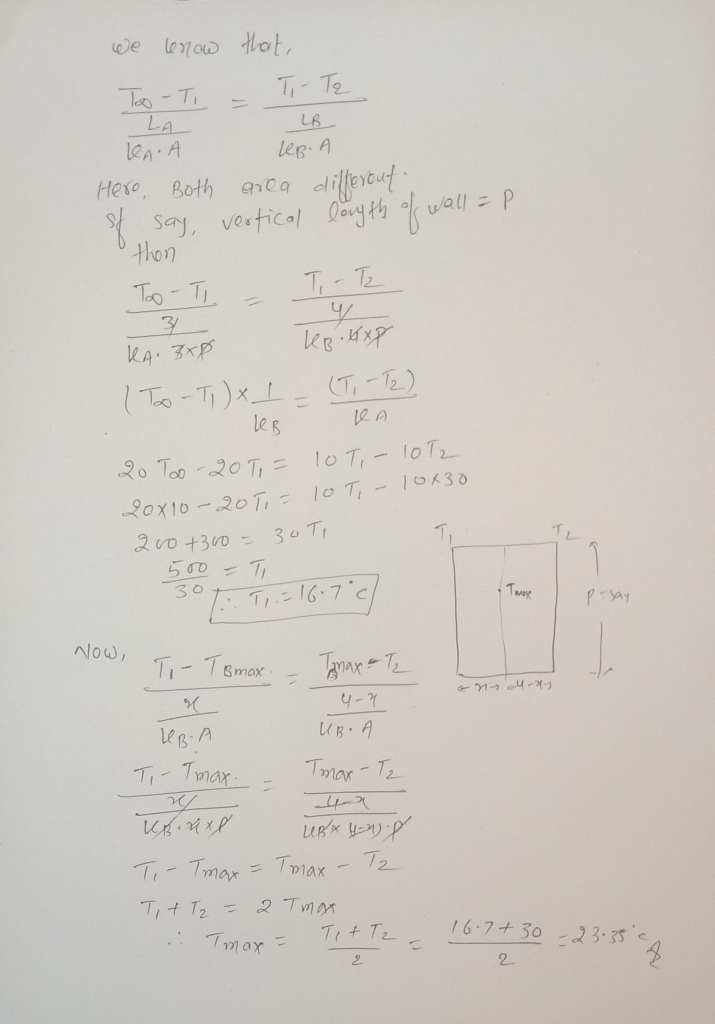 we know that,
T∞ - T1 / (LA / kA·A) = T1 - T2 / (LB / kB·A)
Here, Both area different.
If say, vertical length of wall = P
then
T∞ - T1 / (3 / kA·3×P) = T1 - T2 / (4 / kB·4×P)
(T∞ - T1) × 1/kB = (T1 - T2) / kA
20 T∞ - 20 T1 = 10 T1 - 10 T2
20×10 - 20 T1 = 10 T1 - 10×30
200 + 300 = 30 T1
500/30 = T1
∴ T1 = 16.7°C
T1 T2
Tmax
P = say
x 4-x
Now,
T1 - TBmax / (x / kB·A) = TBmax - T2 / (4-x / kB·A)
T1 - Tmax / (x / kB·x×P) = Tmax - T2 / (4-x / kB×(4-x)·P)
T1 - Tmax = Tmax - T2
T1 + T2 = 2 Tmax
∴ Tmax = T1 + T2 / 2 = 16.7 + 30 / 2 = 23.35°C